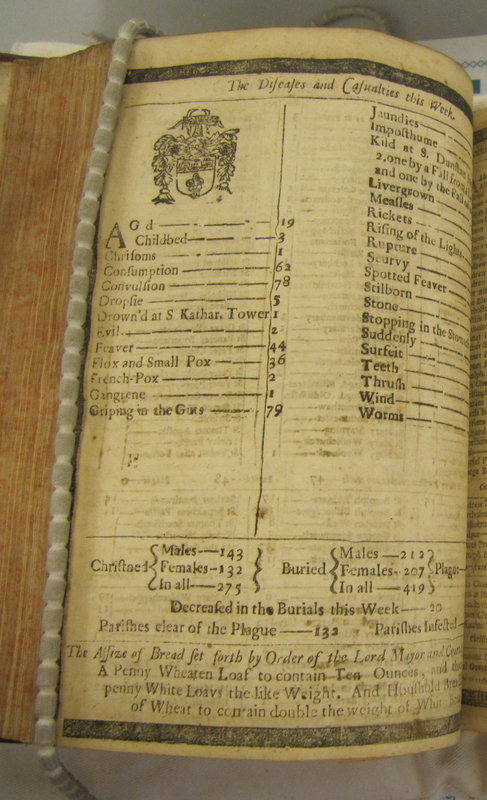 The Diſeaſes and Caſualties this Week.
AGd — 19
Childbed — 3
Chriſoms — 1
Conſumption — 62
Convulſion — 78
Dropſie — 5
Drown'd at S Kathar. Tower 1
Evil — 2
Feaver — 44
Flox and Small Pox — 36
French-Pox — 2
Gangrene — 1
Griping in the Guts — 79
Jaundies
Impoſthume
Kild at S. Dunſtan
2. one by a Fall from
and one by the Fall of
Livergrown
Meaſles
Rickets
Riſing of the Lights
Rupture
Scurvy
Spotted Feaver
Stilborn
Stone
Stopping in the Stomach
Suddenly
Surfeit
Teeth
Thruſh
Wind
Worms
Chriſtned { Males — 143 } Buried { Males — 212 } Plague
Females — 132 Females — 207
In all — 275 In all — 419
Decreaſed in the Burials this Week — 20
Pariſhes clear of the Plague — 132 Pariſhes Infected
The Aſſize of Bread ſet forth by Order of the Lord Mayor and
A Penny Wheaten Loaf to contain Ten Ounces, and
penny White Loavs the like Weight. And Houſhold
of Wheat to contain double the weight of